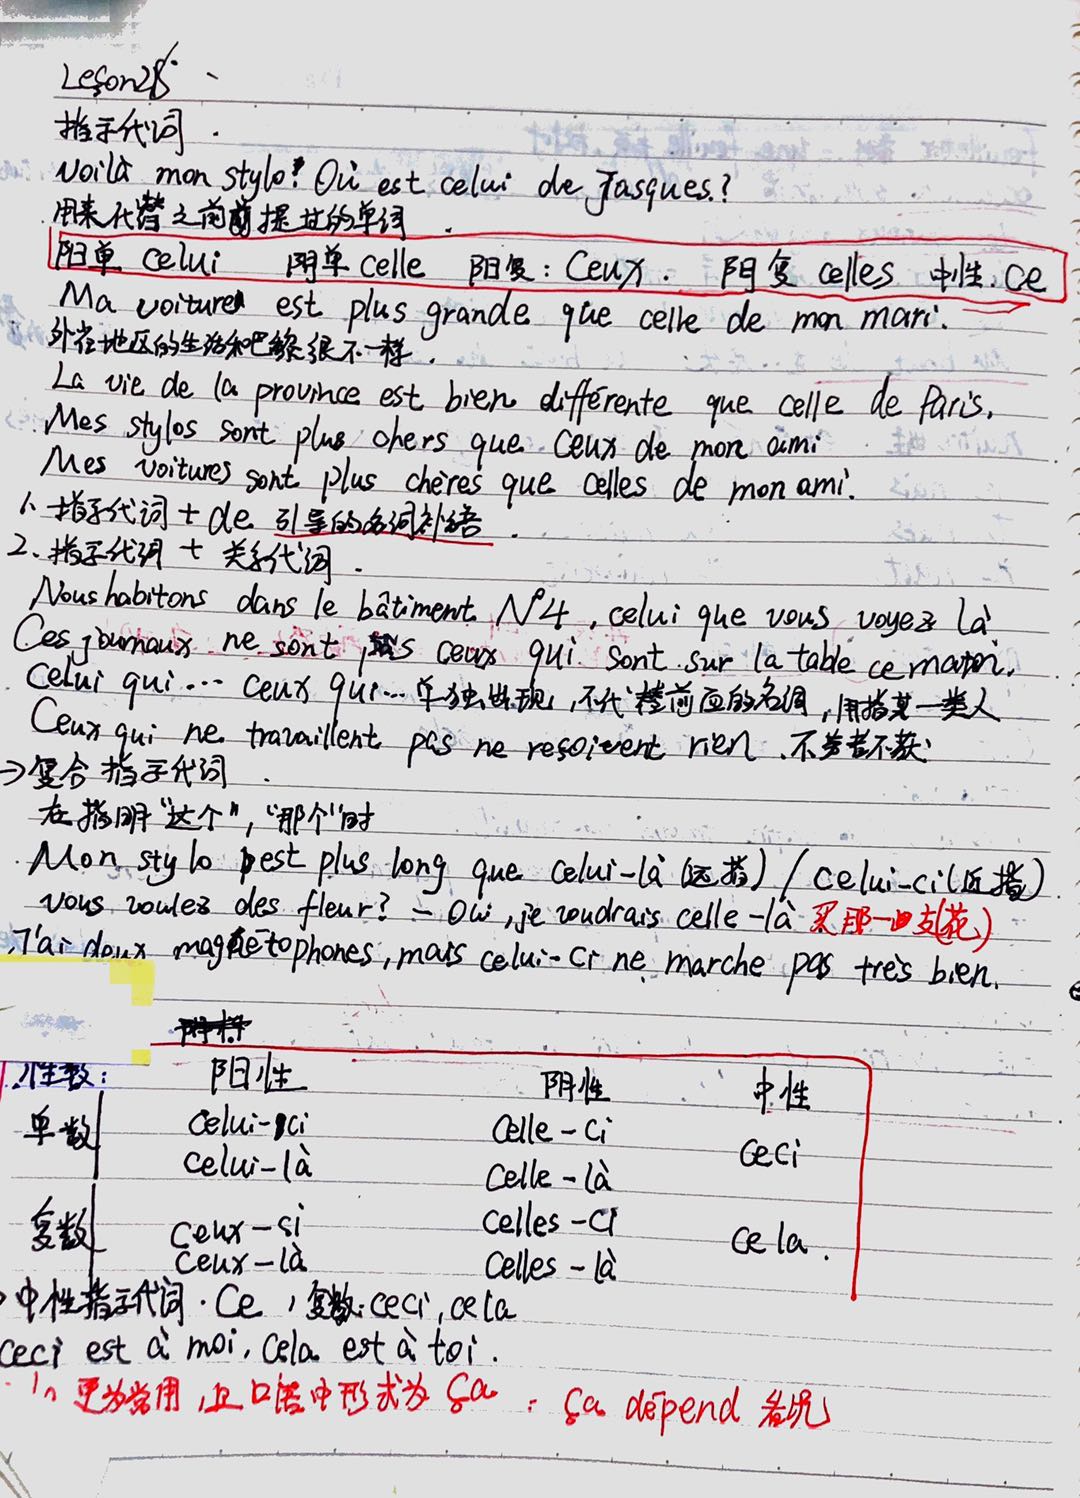 Leçon28
指示代词.
Voilà mon stylo! Où est celui de Jasques?
用来代替之前提过的单词.
阳单 celui 阴单 celle 阳复: Ceux. 阴复 celles 中性. ce
Ma voiture est plus grande que celle de mon mari.
外省地区的生活和巴黎很不一样.
La vie de la province est bien différente que celle de Paris.
Mes stylos sont plus chers que ceux de mon ami
Mes voitures sont plus chères que celles de mon ami.
1. 指示代词 + de 引导的名词补语.
2. 指示代词 + 关系代词.
Nous habitons dans le bâtiment N°4, celui que vous voyez là
Ces journaux ne sont pas ceux qui sont sur la table ce matin.
Celui qui... ceux qui... 单独出现, 不代替前面的名词, 用指某一类人
Ceux qui ne travaillent pas ne resoivent rien. 不劳者不获.
→复合指示代词.
在指明"这个", "那个"时
Mon stylo est plus long que celui-là (远指) / celui-ci (近指).
vous voulez des fleur? - Oui, je voudrais celle-là 买那一支(花)
J'ai deux magnétophones, mais celui-ci ne marche pas très bien.
性数: 阳性 阴性 中性
单数 celui-ci celle-ci ceci
celui-là celle-là
复数 ceux-si celles-ci cela.
ceux-là celles-là
中性指示代词. Ce, 复数: ceci, cela
ceci est à moi, cela est à toi.
更为常用, 且口语中形式为 ça : ça dépend 看情况